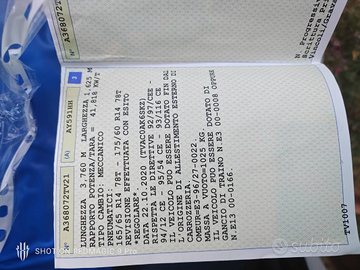 N° A368072TV21 (A) AY591HH 3
LUNGHEZZA 3.760 M LARGHEZZA 1.625 M
RAPPORTO POTENZA/TARA = 41,818 KW/T
TIPO CAMBIO: MECCANICO
PNEUMATICI:
165/65 R14 78T - 175/60 R14 78T
REVISIONE EFFETTUATA CON ESITO
*REGOLARE*
DATA 22.10.2020 (TVACOAK6SKZ)
RISPETTA LE DIRETTIVE 92/97/CEE -
94/12 CE - 95/54 CE - 93/116 CE
IL VEICOLO PUO ESSERE DOTATO FIN DAL
L'ORIGINE DI ALLESTIMENTO ESTERNO DI
CARROZZERIA.
OMOLOGUE=E3-96/27-0022.
MASSA A VUOTO=1022 KG.
IL VEICOLO PUO ESSERE DOTATO DI
GANCIO DI TRAINO N.E3 00-0008 OPPURE
N.E13 00-0166.
TV1007
N° A368072TV
N. Progressi
Scrittura Pri
Vincoli/Grava
SHOT ON MI 9
AI TRIPLE CAMERA
subito